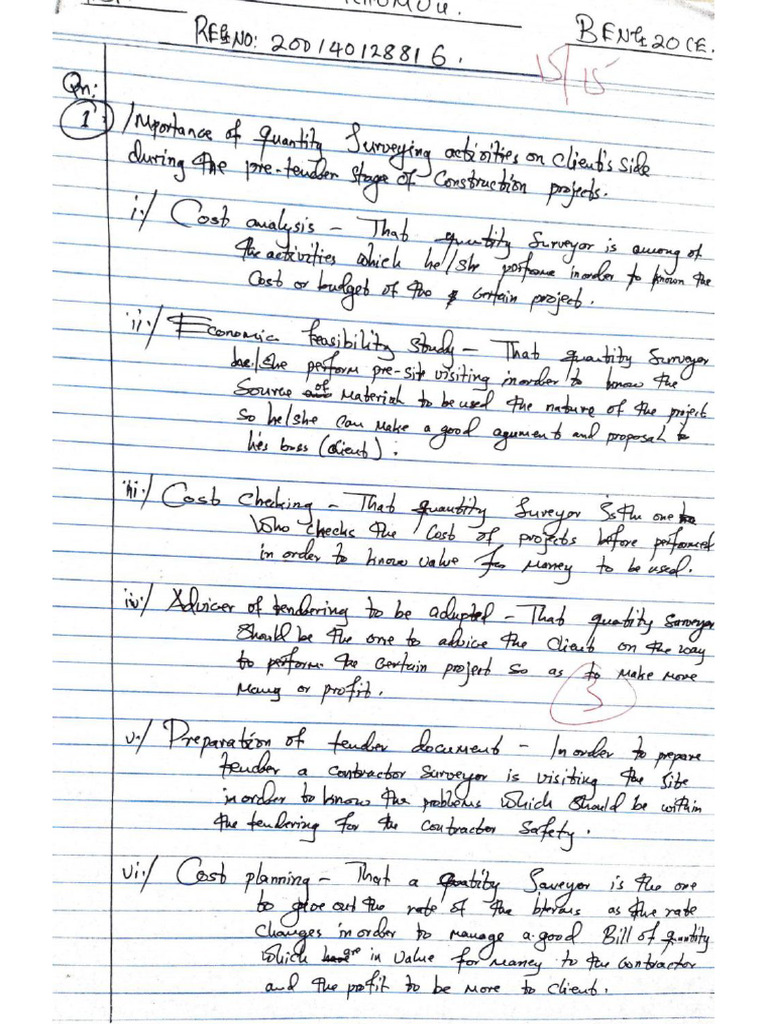 REG NO: 200140128816.
BENG20CE.
15/15
Qn:
1 Importance of quantity Surveying activities on client's side
during the pre-tender stage of Construction projects.
i./ Cost analysis – That quantity Surveyor is among of
the activities which he/she perform inorder to known the
Cost or budget of the certain project.
ii./ Economic feasibility study – That quantity Surveyor
he/she perform pre-site visiting inorder to know the
Source of Material to be used the nature of the project
so he/she can make a good agument and proposal to
his boss (client);
iii./ Cost checking – That quantity Surveyor is the one
who checks the Cost of projects before performed
in order to know value for Money to be used.
iv./ Advicer of tendering to be adupted – That quantity surveyor
should be the one to advice the client on the way
to perform the certain project so as to make more
many or profit.
3
v./ Preparation of tender document – Inorder to prepare
tender a contractor surveyor is visiting the site
inorder to know the problems which should be within
the tendering for the contractor safety.
vi./ Cost planning – That a quatity Surveyor is the one
to give out the rate of the as the rate
changes in order to manage a good Bill of quantity
which are in value for money to the contractor
and the profit to be more to client.